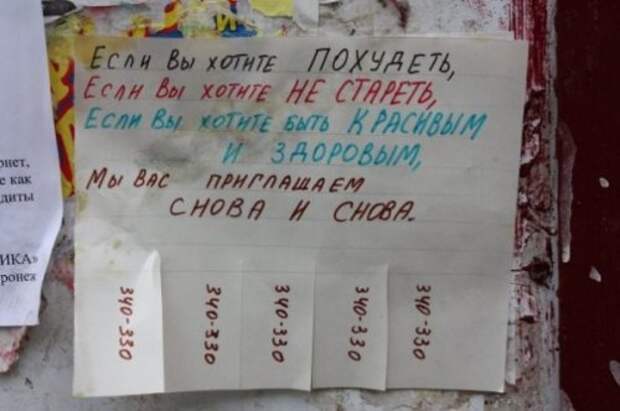 Если Вы хотите ПОХУДЕТЬ,
Если Вы хотите НЕ СТАРЕТЬ,
Если Вы хотите быть КРАСИВЫМ
И ЗДОРОВЫМ,
Мы ВАС ПРИГЛАШАЕМ
СНОВА И СНОВА.
340-330
340-330
340-330
340-330
340-330
рнет,
е как
диты
ИКА»
ронеж